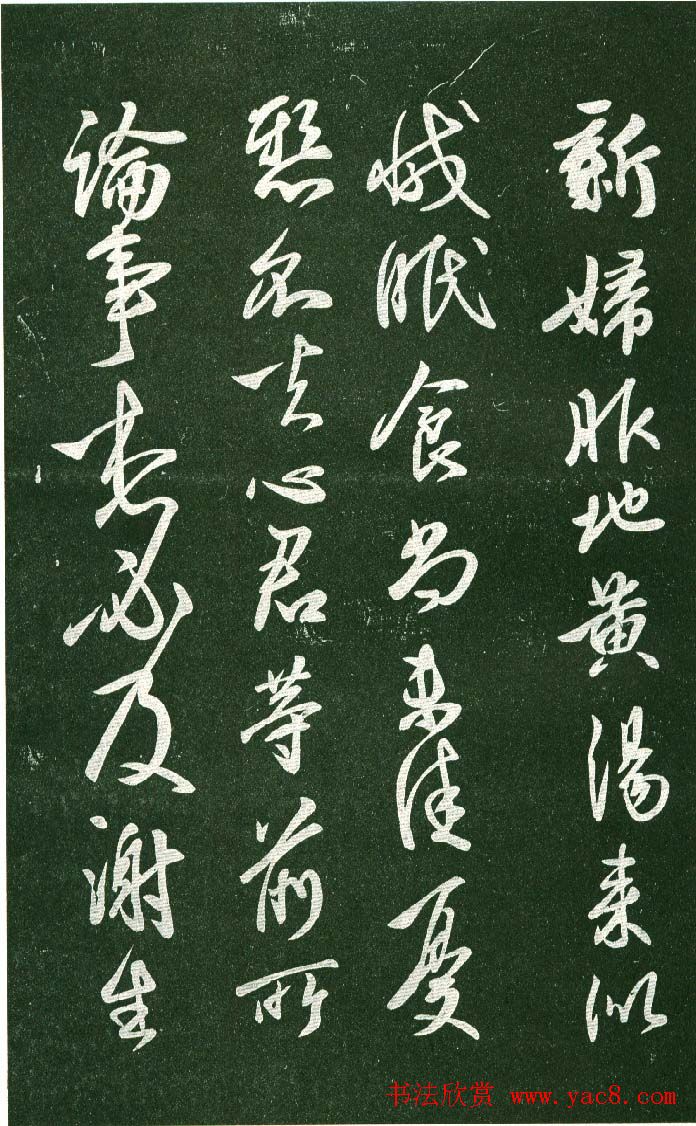 新婦服地黃湯來似
減眠食尚未佳憂
懸不去心君等前所
論事想必及謝生
书法欣赏 www.yac8.com